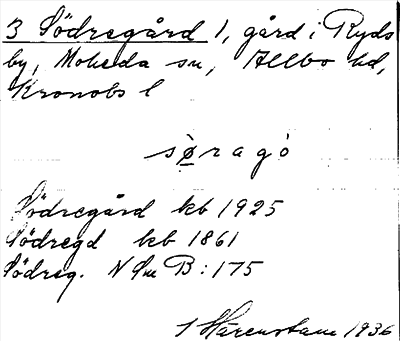 3 Södregård 1, gård i Ryds
by, Moheda sn, Allbo hd,
Kronobs l
sø̀ragó
Södregård kb 1925
Södregd kb 1861
Södreg. N Sm B:175
S Härenstam 1936